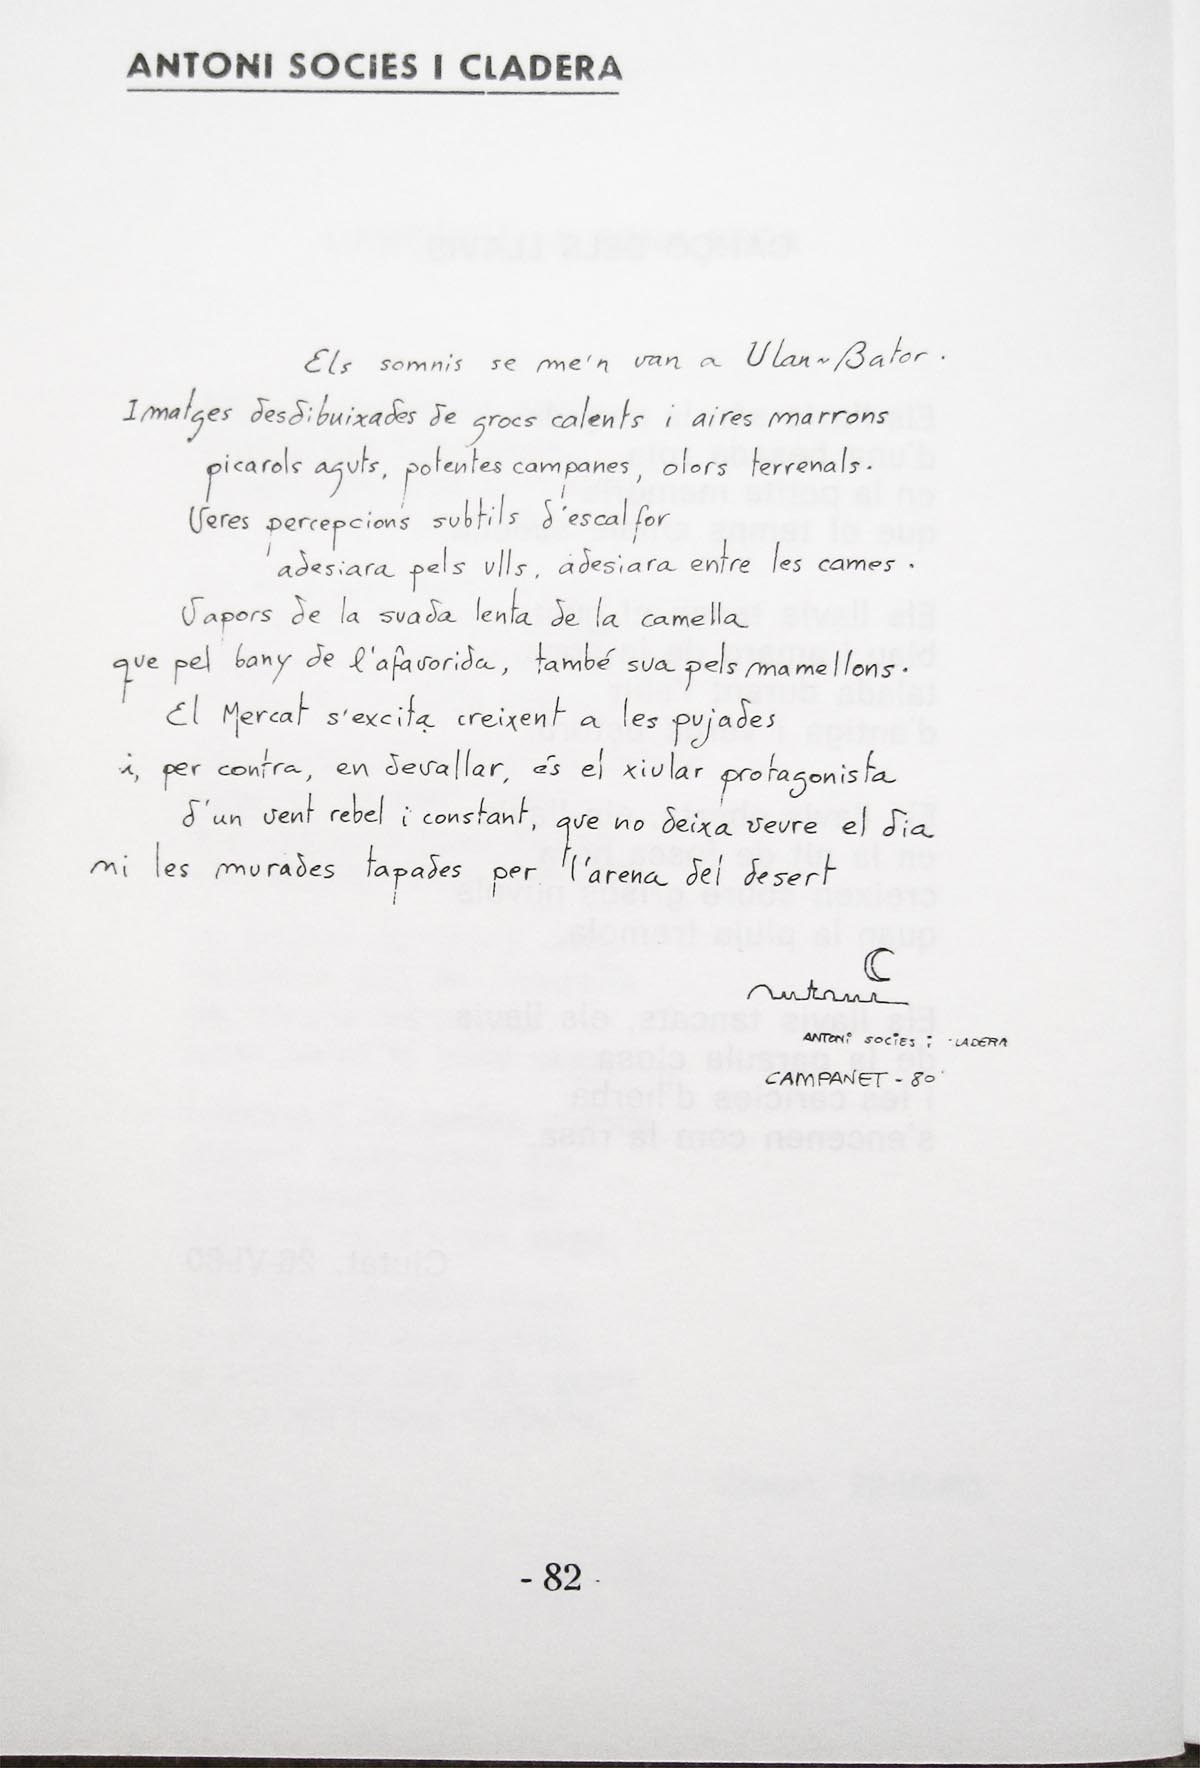 ANTONI SOCIES I CLADERA
Els somnis se me'n van a Ulan~Bator.
Imatges desdibuixades de grocs calents i aires marrons
picarols aguts, potentes campanes, olors terrenals.
Veres percepcions subtils d'escalfor
adesiara pels ulls, adesiara entre les cames.
Vapors de la suada lenta de la camella
que pel bany de l'afavorida, també sua pels mamellons.
El Mercat s'excita creixent a les pujades
i, per contra, en devallar, és el xiular protagonista
d'un vent rebel i constant, que no deixa veure el dia
ni les murades tapades per l'arena del desert
Antoni C
ANTONI SOCIES i LADERA
CAMPANET - 80
- 82 -